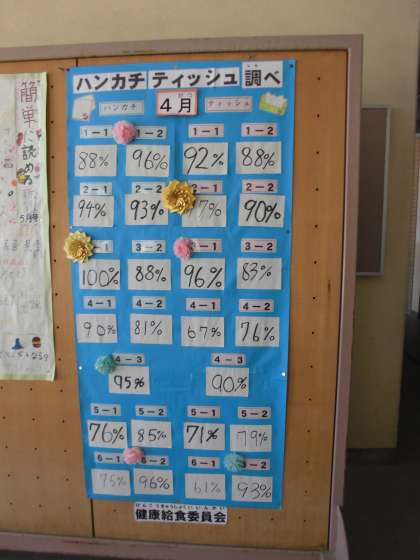 ハンカチ ティッシュ 調べ
ハンカチ 4月 ティッシュ
1-1 1-2 1-1 1-2
88% 96% 92% 88%
2-1 2-2 2-1 2-2
94% 93% 7% 90%
3-2 3-1 3-2
100% 88% 96% 83%
4-1 4-2 4-1 4-2
90% 81% 67% 76%
4-3 4-3
95% 90%
5-1 5-2 5-1 5-2
76% 85% 71% 79%
6-1 6-2 6-1 6-2
75% 96% 61% 93%
けんこうきゅうしょくいいんかい
健康給食委員会
簡単に読める
5月号